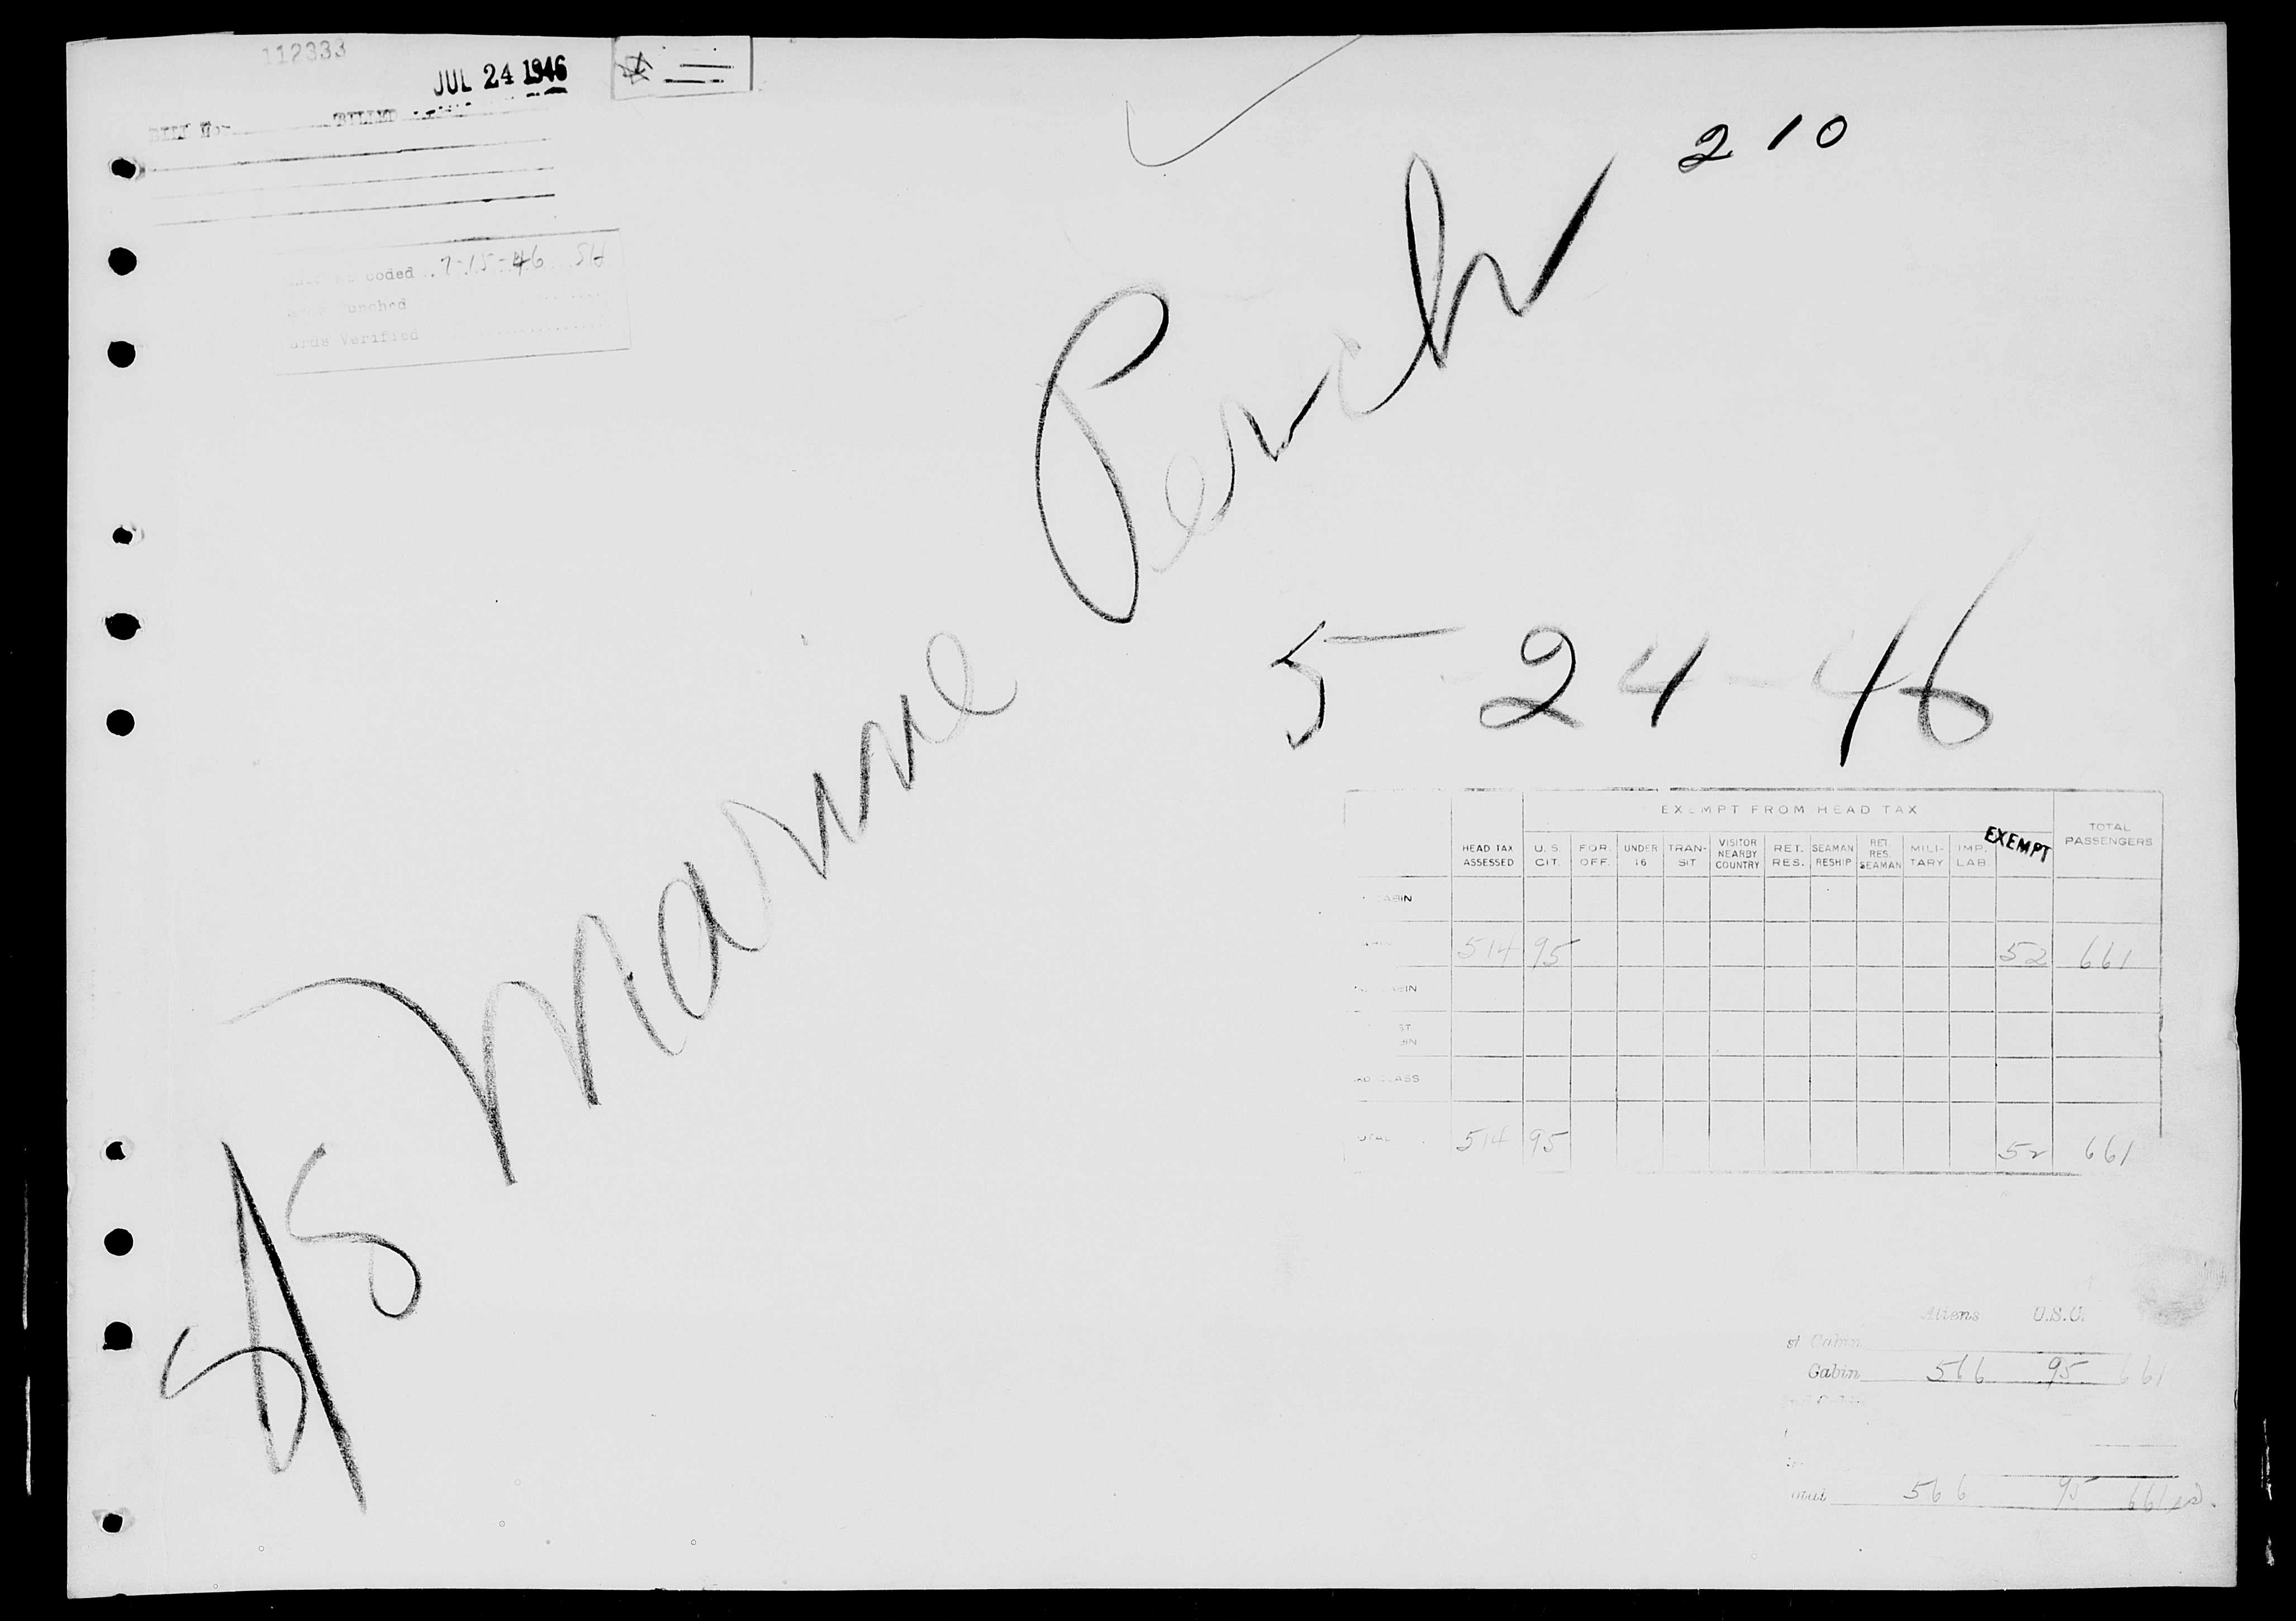 112333
JUL 24 1946
BILL No. BILLED
210
coded 7-15-46 SH
unched
ards Verified
S/S Marine Perch
5-24-46
EXEMPT FROM HEAD TAX
HEAD TAX ASSESSED U.S. CIT. FOR. OFF. UNDER 16 TRAN-SIT VISITOR NEARBY COUNTRY RET. RES. SEAMAN RESHIP RET. RES. SEAMAN MILI-TARY IMP. LAB. EXEMPT TOTAL PASSENGERS
CABIN
514 95 52 661
BIN
ST
BIN
CLASS
OTAL 514 95 52 661
Aliens U.S.C.
st Cabin
Cabin 566 95 661
otal 566 95 661